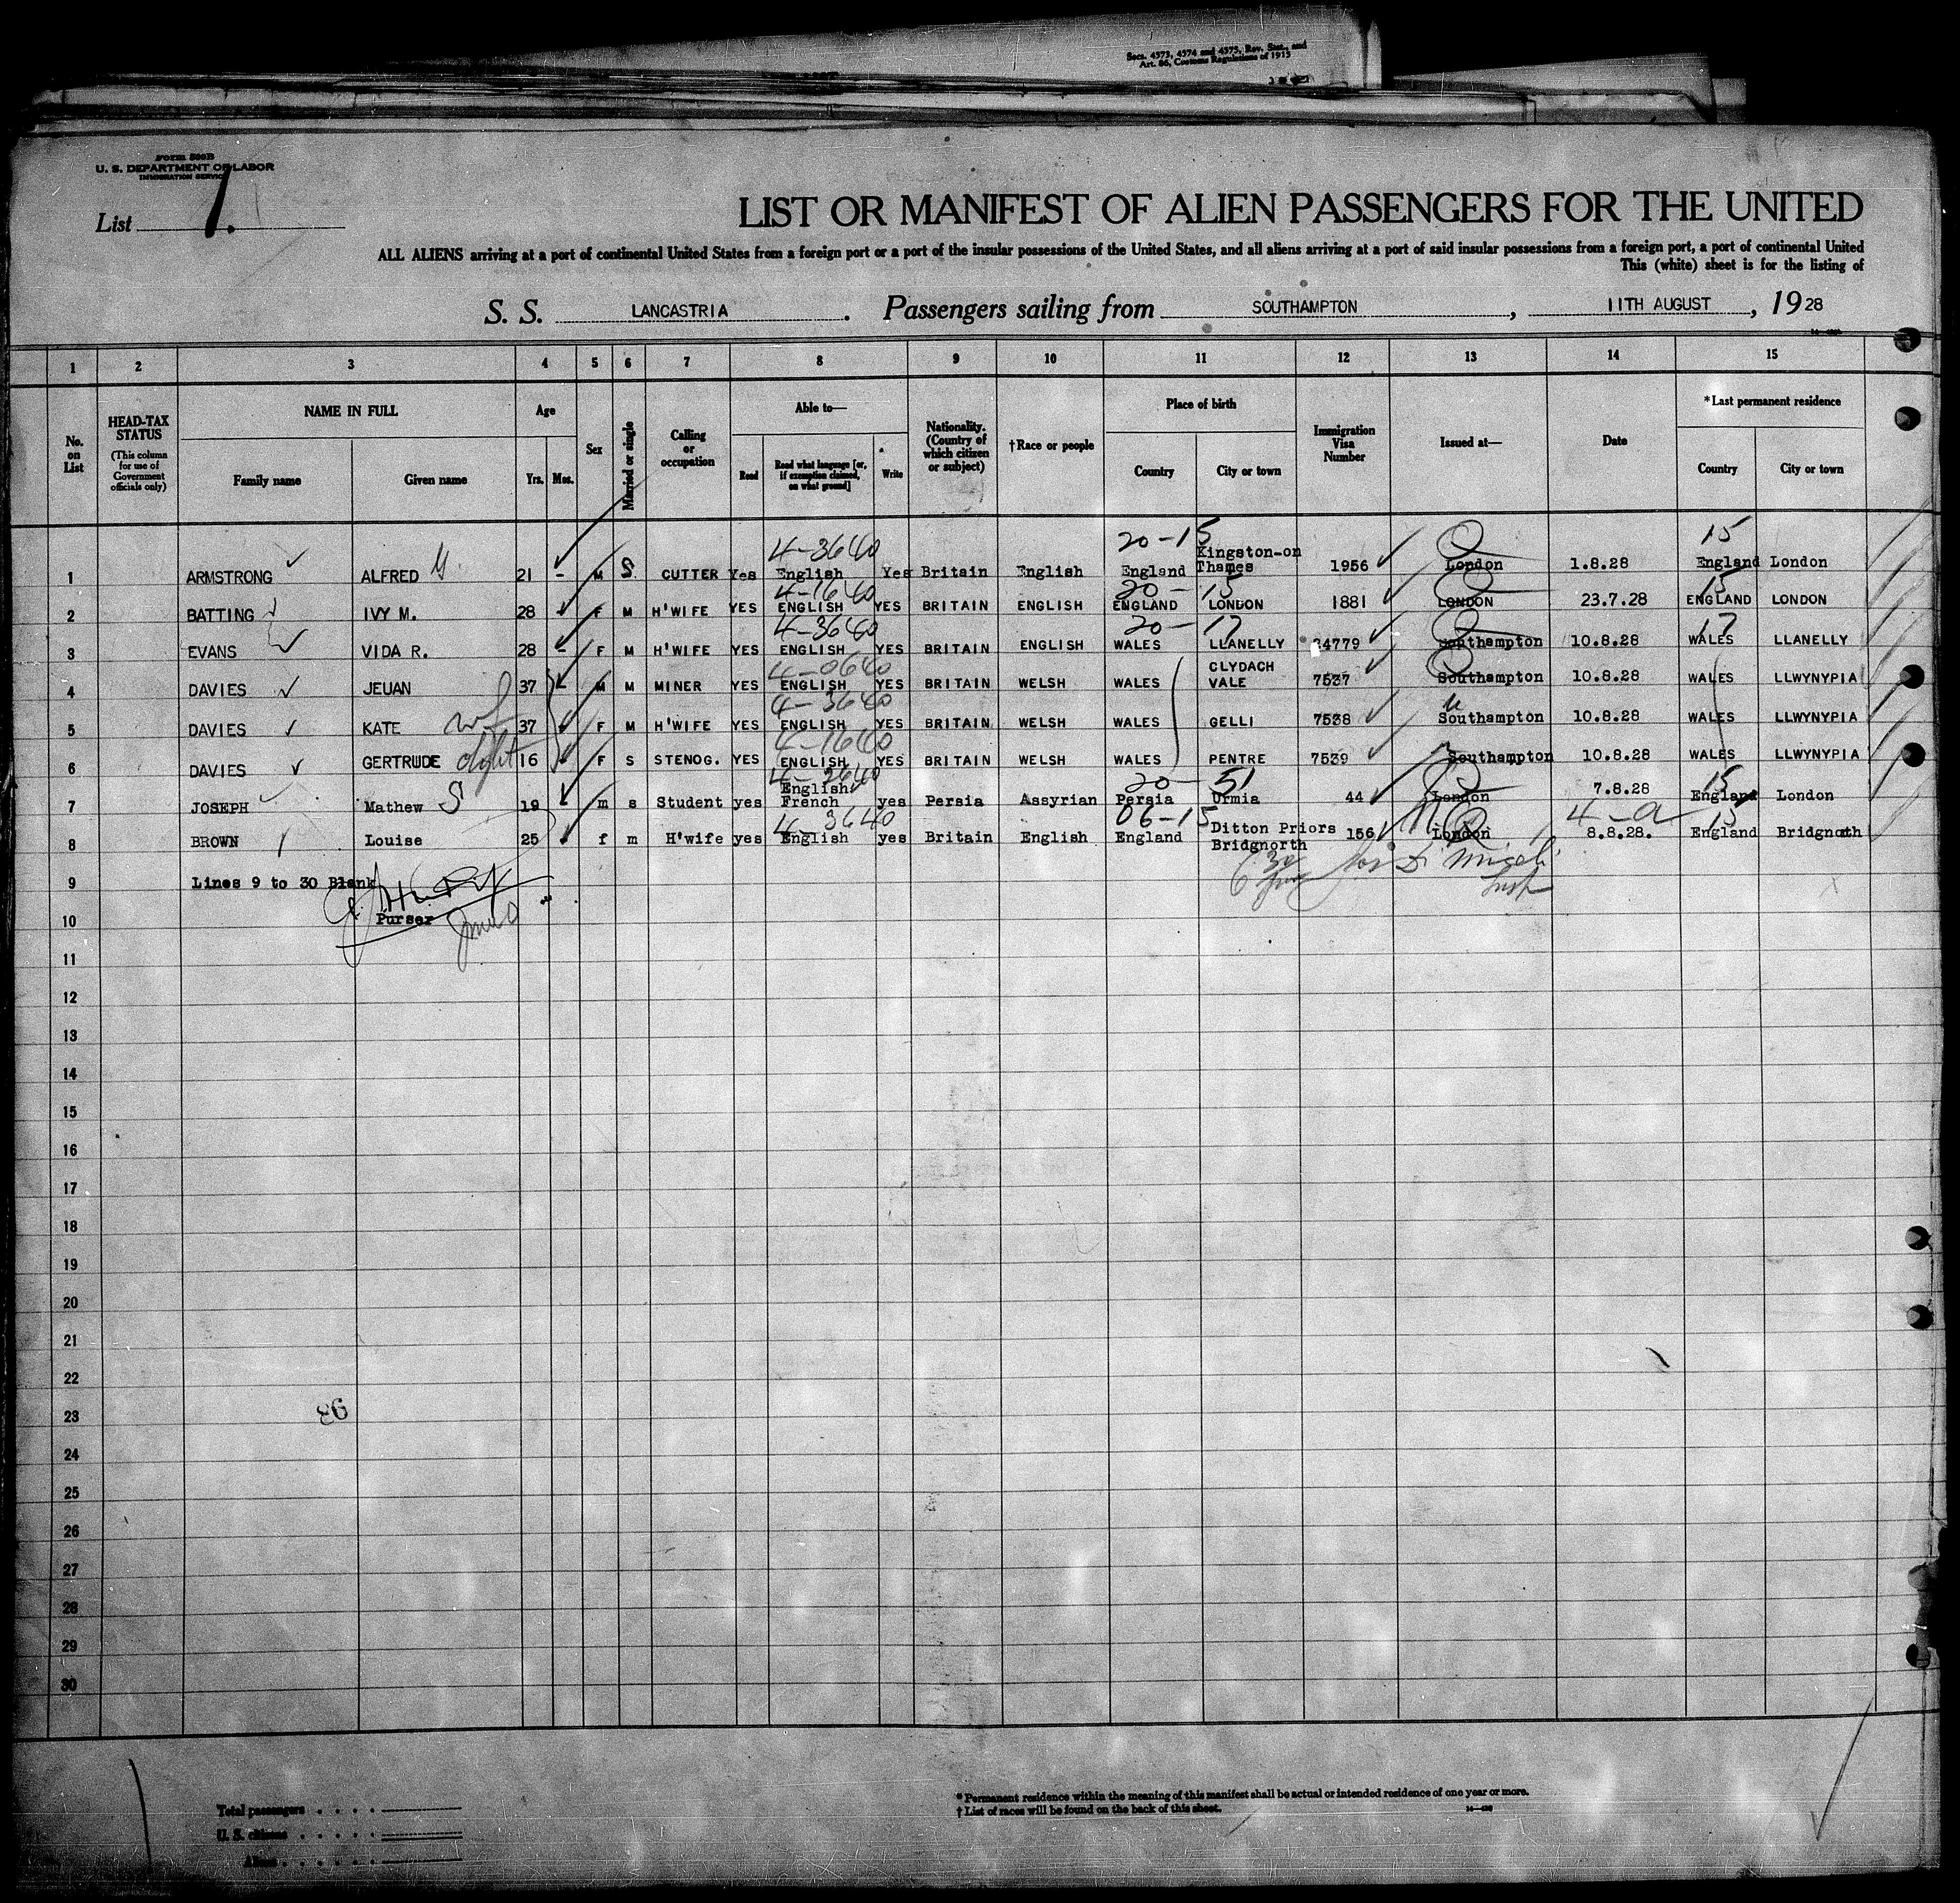 Secs. 4573, 4574 and 4575, Rev. Stat., and
Art. 86, Customs Regulations of 1915
Form 500B
U. S. DEPARTMENT OF LABOR
IMMIGRATION SERVICE
List 1.
LIST OR MANIFEST OF ALIEN PASSENGERS FOR THE UNITED
ALL ALIENS arriving at a port of continental United States from a foreign port or a port of the insular possessions of the United States, and all aliens arriving at a port of said insular possessions from a foreign port, a port of continental United
This (white) sheet is for the listing of
S. S. LANCASTRIA. Passengers sailing from SOUTHAMPTON, 11TH AUGUST, 1928
1 2 3 4 5 6 7 8 9 10 11 12 13 14 15
No. on List
HEAD-TAX STATUS (This column for use of Government officials only)
NAME IN FULL Family name Given name
Age Yrs. Mos.
Sex
Married or single
Calling or occupation
Able to— Read Read what language [or, if exemption claimed, on what ground] Write
Nationality. (Country of which citizen or subject)
†Race or people
Place of birth Country City or town
Immigration Visa Number
Issued at—
Date
*Last permanent residence Country City or town
4-3640 20-15 15
1 ARMSTRONG ALFRED 21 - M S CUTTER Yes English Yes Britain English England Kingston-on Thames 1956 London 1.8.28 England London
4-1640 20-15 15
2 BATTING IVY M. 28 F M H'WIFE YES ENGLISH YES BRITAIN ENGLISH ENGLAND LONDON 1881 LONDON 23.7.28 ENGLAND LONDON
4-3640 20-17 17
3 EVANS VIDA R. 28 - F M H'WIFE YES ENGLISH YES BRITAIN ENGLISH WALES LLANELLY 24779 Southampton 10.8.28 WALES LLANELLY
4-0640
4 DAVIES JEUAN 37 M M MINER YES ENGLISH YES BRITAIN WELSH WALES CLYDACH VALE 7537 Southampton 10.8.28 WALES LLWYNYPIA
4-3640
5 DAVIES KATE wf 37 F M H'WIFE YES ENGLISH YES BRITAIN WELSH WALES GELLI 7538 Southampton 10.8.28 WALES LLWYNYPIA
4-1640
6 DAVIES GERTRUDE dght 16 F S STENOG. YES ENGLISH YES BRITAIN WELSH WALES PENTRE 7539 Southampton 10.8.28 WALES LLWYNYPIA
4-2640 20-51 15
7 JOSEPH Mathew S 19 m s Student yes English French yes Persia Assyrian Persia Urmia 44 London 7.8.28 England London
4-3640 06-15 4-a 15
8 BROWN Louise 25 f m H'wife yes English yes Britain English England Ditton Priors Bridgnorth 156 London 8.8.28. England Bridgnoth
9 Lines 9 to 30 Blank
Purser
10
11
12
13
14
15
16
17
18
19
20
21
22
23
93
24
25
26
27
28
29
30
Total passengers
U. S. citizens
Aliens
* Permanent residence within the meaning of this manifest shall be actual or intended residence of one year or more.
† List of races will be found on the back of this sheet.